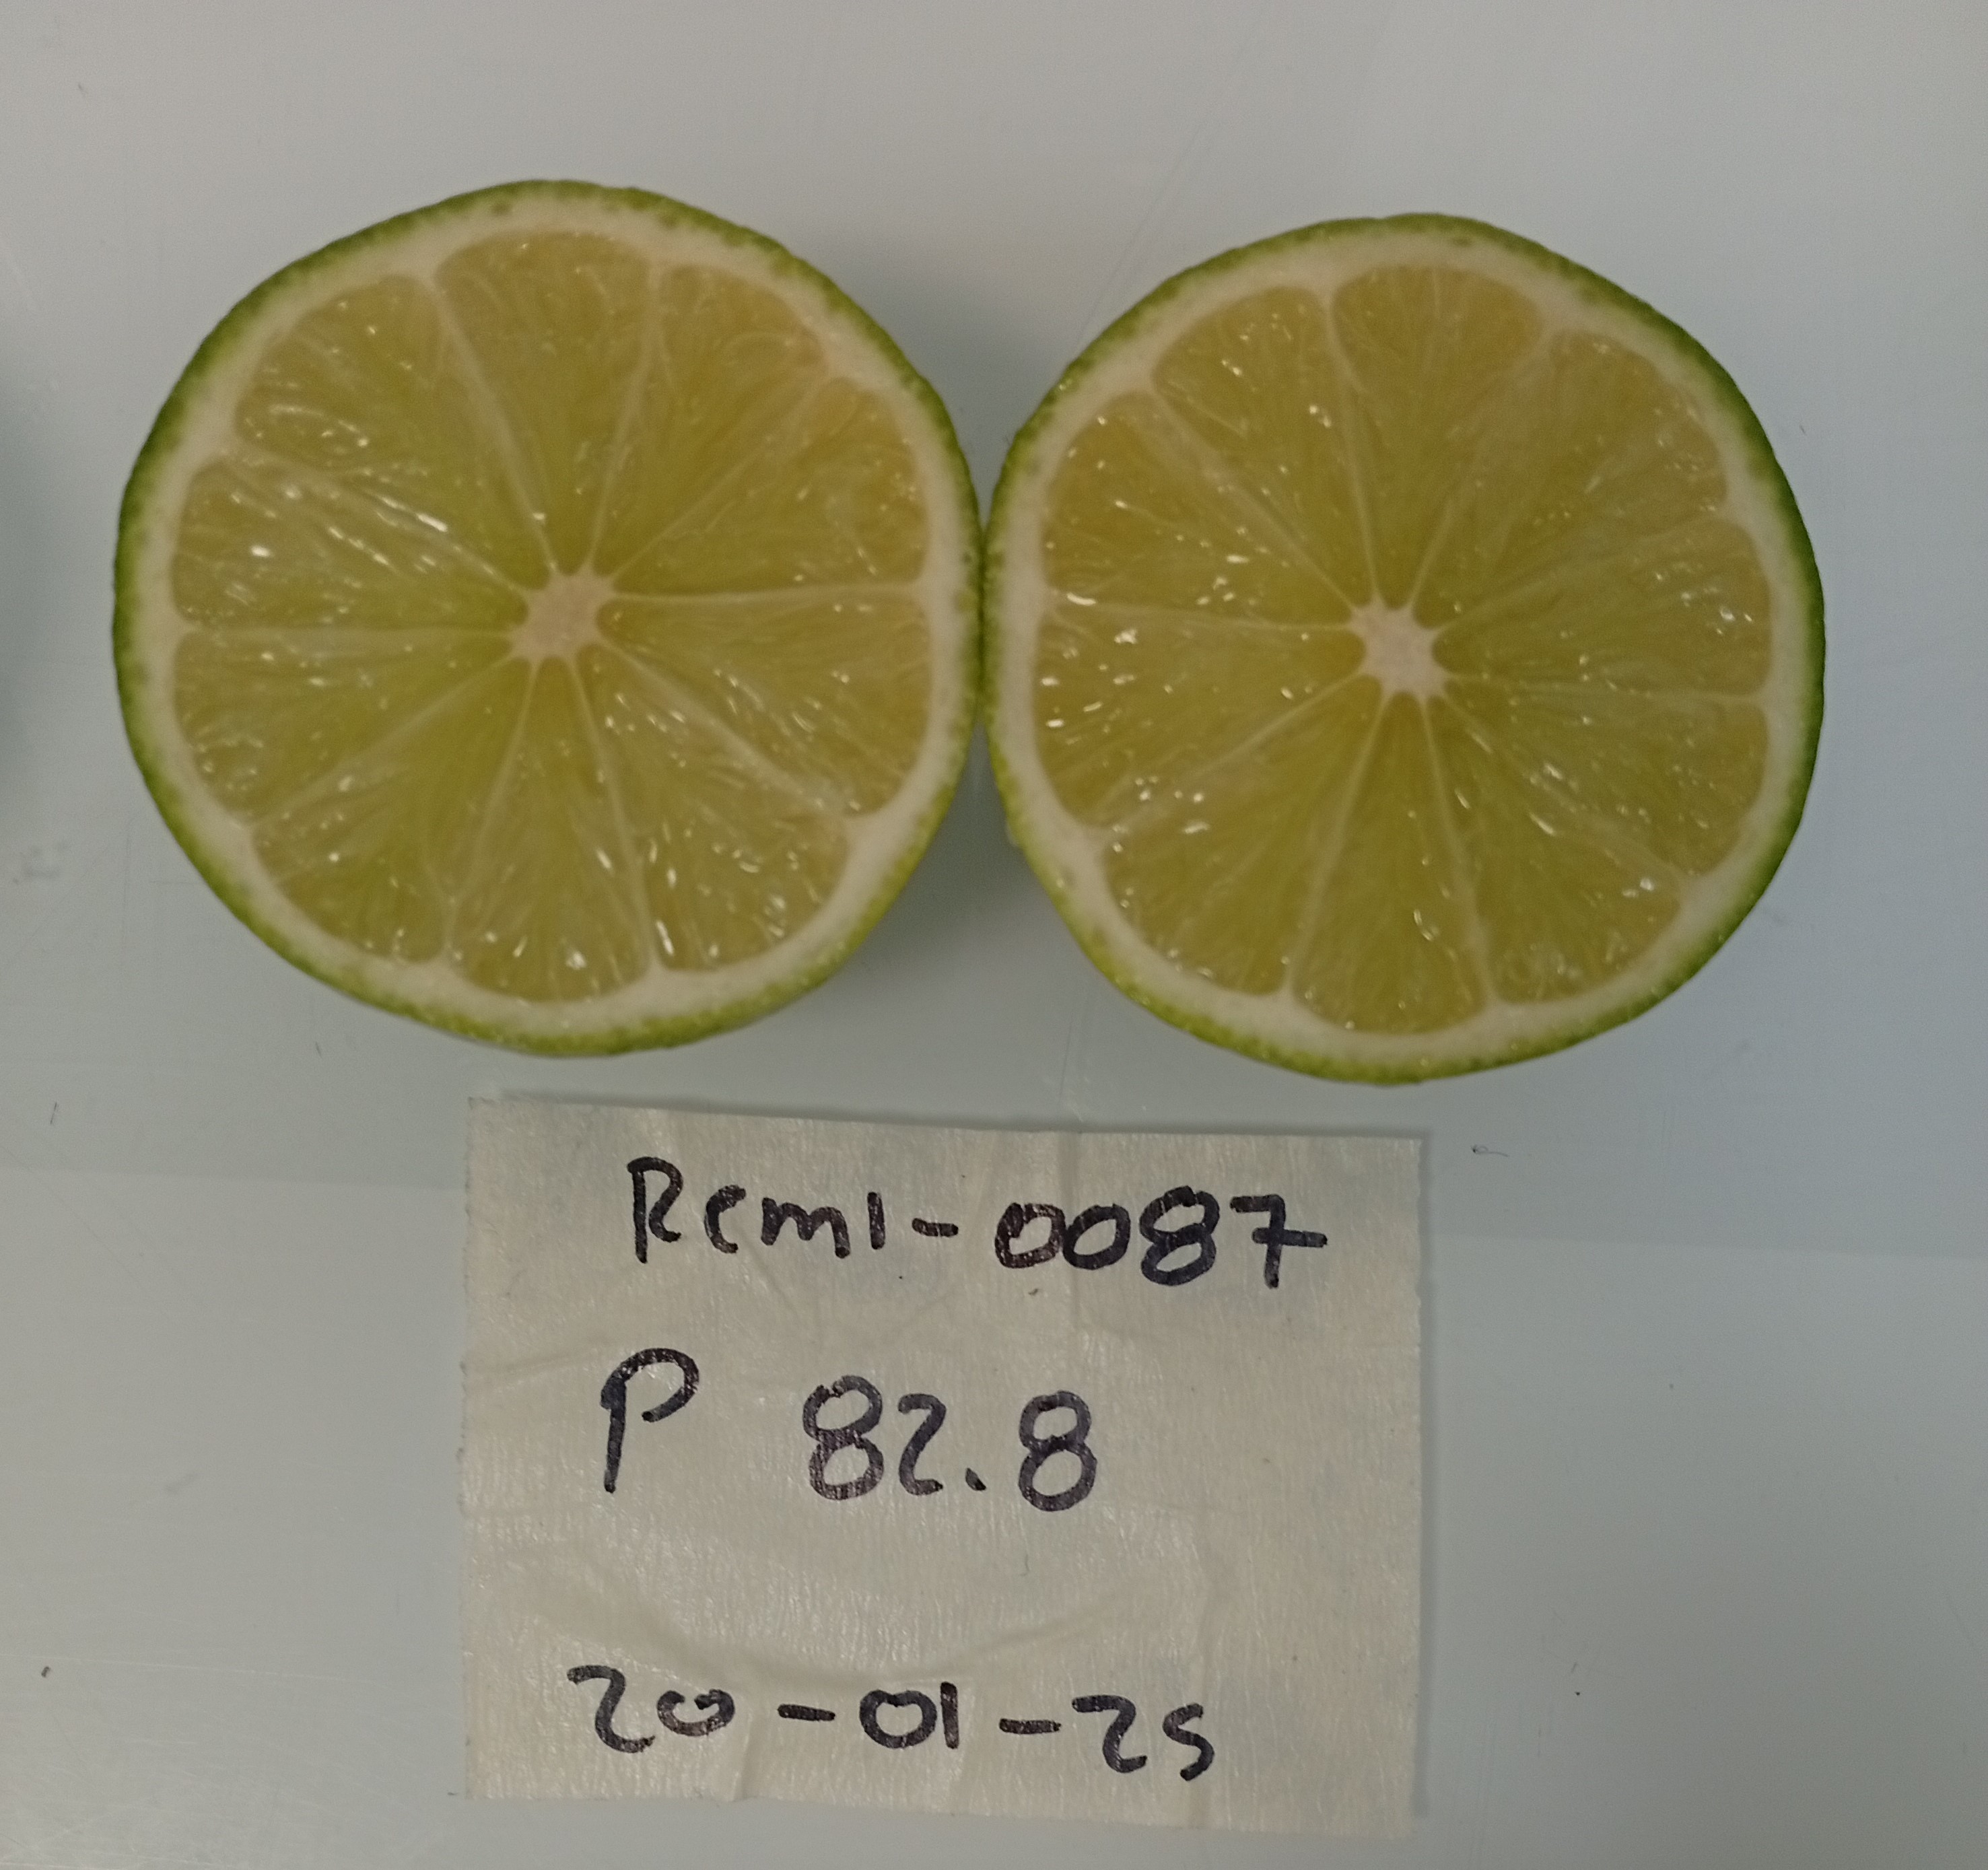 Rcml-0087
P 82.8
20-01-25